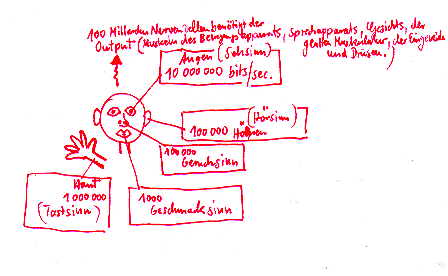 100 Milliarden Nervenzellen benötigt der
Output (Muskeln des Bewegungsapparats, Sprechapparats, Gesichts, der
glatten Muskulatur, der Eingeweide
und Drüsen.)
Augen (Sehsinn)
10 000 000 bits/sec.
(Hörsinn)
100 000 Hören
100 000
Geruchsinn
1000
Geschmacksinn
Haut
1 000 000
(Tastsinn)